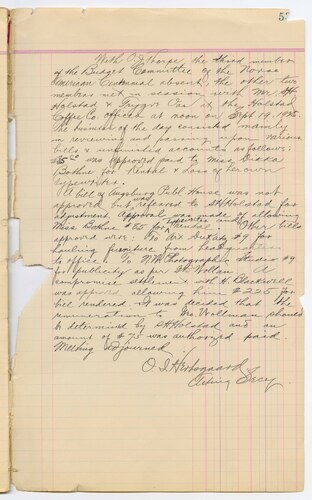 5
With O. J. Thorpe, the third member
of the Budget Committee of the Norse
American Centennial absent, the other two
members met in session with Mr. SH
Holstad & Trygve Oas at the Holstad
Coffee Co. offices at noon on Sept 19, 1925.
The business of the day consisted mainly
in reviewing and passing upon various
bills & unfinished accounts as follows:
was approved paid to Miss
Bothne for Rental & Loss of her own
typewriter.
A bill of Augsburg Publ House was not
approved but referred to SH Holstad for
adjustment. Approval was made of allowing
Miss Bothne $85 for Rental. Other bills
approved were: To $9 for
hauling furniture from headquarters
to office. To N.W. Photographic Studios $4
for publicity as per A
compromise settlement with H. Blackwell
was approved allowing him $225 for
bill rendered. It was decided that the
remuneration to Geo Wollman should
be determined by SH Holstad and an
amount of $75 was authorized paid
Meeting adjourned.
O. I. Hertsgaard
Acting Secy.